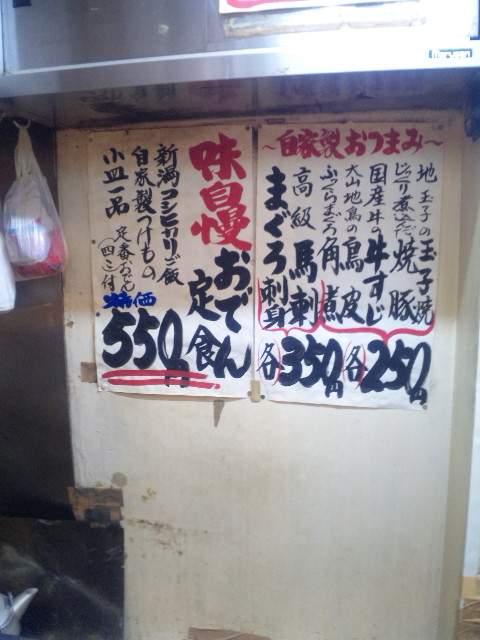 maruzen
~自家製おつまみ~
地玉子の玉子焼
じっくり煮込んだ焼豚
国産牛の牛すじ
大山地鳥の鳥皮
ふっくらまろ角煮
各250円
高級馬刺
まぐろ刺身
各350円
味自慢
おでん
定食
新潟コシヒカリご飯
自家製つけもの
小皿一品
定番おでん
(四コ)付
特価
550円